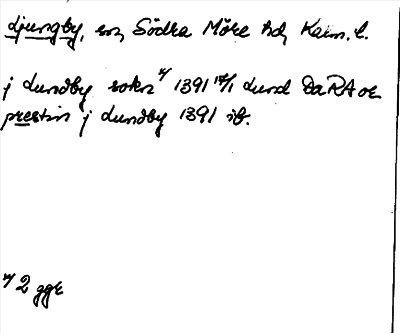 Ljungby, sn, Södra Möre hd, Kalm. l.
j Lundby sokn ¹⁾ 1391 17/1 Lund DaRA or
prestin j Lundby 1391 ib.
¹⁾ 2 ggr